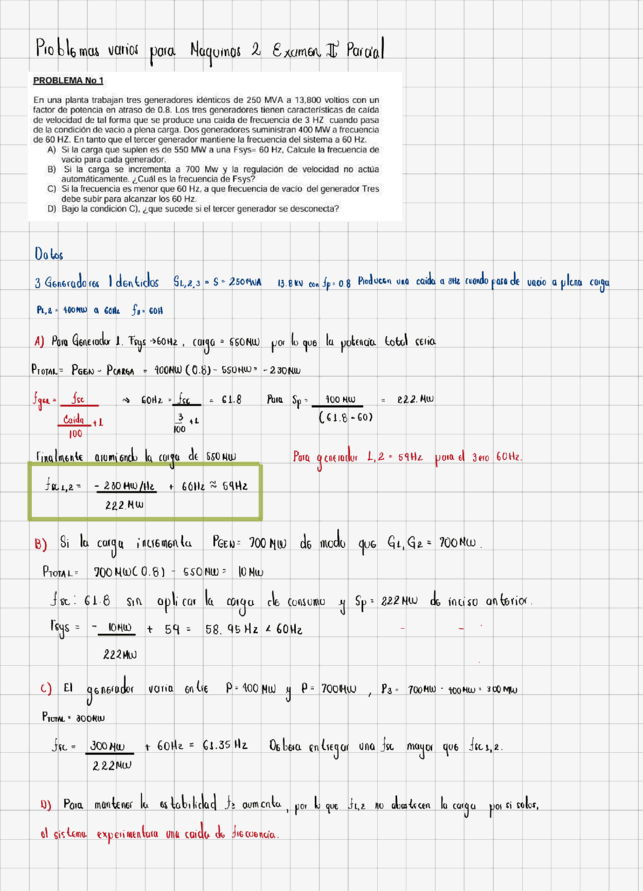 Problemas varios para Maquinas 2 Examen II Parcial
PROBLEMA No 1
En una planta trabajan tres generadores idénticos de 250 MVA a 13,800 voltios con un
factor de potencia en atraso de 0.8. Los tres generadores tienen características de caída
de velocidad de tal forma que se produce una caída de frecuencia de 3 HZ cuando pasa
de la condición de vacio a plena carga. Dos generadores suministran 400 MW a frecuencia
de 60 HZ. En tanto que el tercer generador mantiene la frecuencia del sistema a 60 Hz.
A) Si la carga que suplen es de 550 MW a una Fsys= 60 Hz, Calcule la frecuencia de
vacio para cada generador.
B) Si la carga se incrementa a 700 Mw y la regulación de velocidad no actúa
automáticamente. ¿Cuál es la frecuencia de Fsys?
C) Si la frecuencia es menor que 60 Hz, a que frecuencia de vacío del generador Tres
debe subir para alcanzar los 60 Hz.
D) Bajo la condición C), ¿que sucede si el tercer generador se desconecta?
Datos
3 Generadores Identicos S1,2,3 = S = 250MVA 13.8 KV con fp = 0.8 Producen una caida a 3Hz cuando pasa de vacio a plena carga
P1,2 = 400MW a 60Hz f3 = 60H
A) Para Generador 1. Fsys → 60Hz, carga = 550MW por lo que la potencia total seria
PTOTAL = PGEN - PCARGA = 400MW (0.8) - 550MW = -230MW
fgen = fsc / (Caida/100 + 1) → 60Hz = fsc / (3/100 + 1) = 61.8 Para Sp = 400 MW / (61.8 - 60) = 222 MW
Finalmente asumiendo la carga de 550MW Para generador 1,2 = 59Hz para el 3ero 60Hz.
fsc1,2 = - 230 MW/Hz / 222 MW + 60Hz ≈ 59Hz
B) Si la carga incrementa PGEN = 700 MW de modo que G1, G2 = 700 MW.
PTOTAL = 700MW(0.8) - 550MW = 10 MW
fsc: 61.8 sin aplicar la carga de consumo y Sp = 222MW de inciso anterior.
Fsys = - 10MW / 222MW + 59 = 58.95 Hz < 60Hz
C) El generador varia entre P = 400 MW y P = 700MW, P3 = 700MW - 400MW = 300 MW
PTOTAL = 300MW
fsc = 300 MW / 222MW + 60Hz = 61.35 Hz Debera entregar una fsc mayor que fsc1,2.
D) Para mantener la estabilidad f2 aumenta, por lo que f1,2 no abastecen la carga por si solos,
el sistema experimentara una caida de frecuencia.